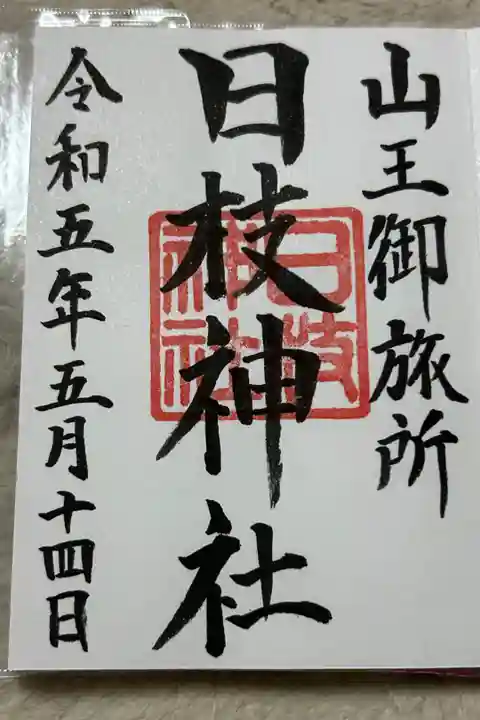 山王御旅所
日枝神社
日枝神社
令和五年五月十四日